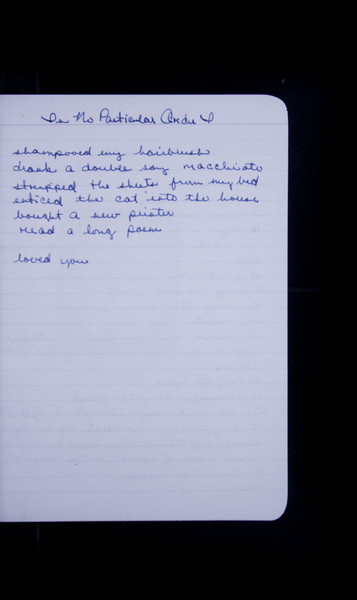 In No Particular Order
shampooed my hairbrush
drank a double soy macchiato
stripped the sheets from my bed
enticed the cat into the house
bought a new printer
read a long poem
loved you